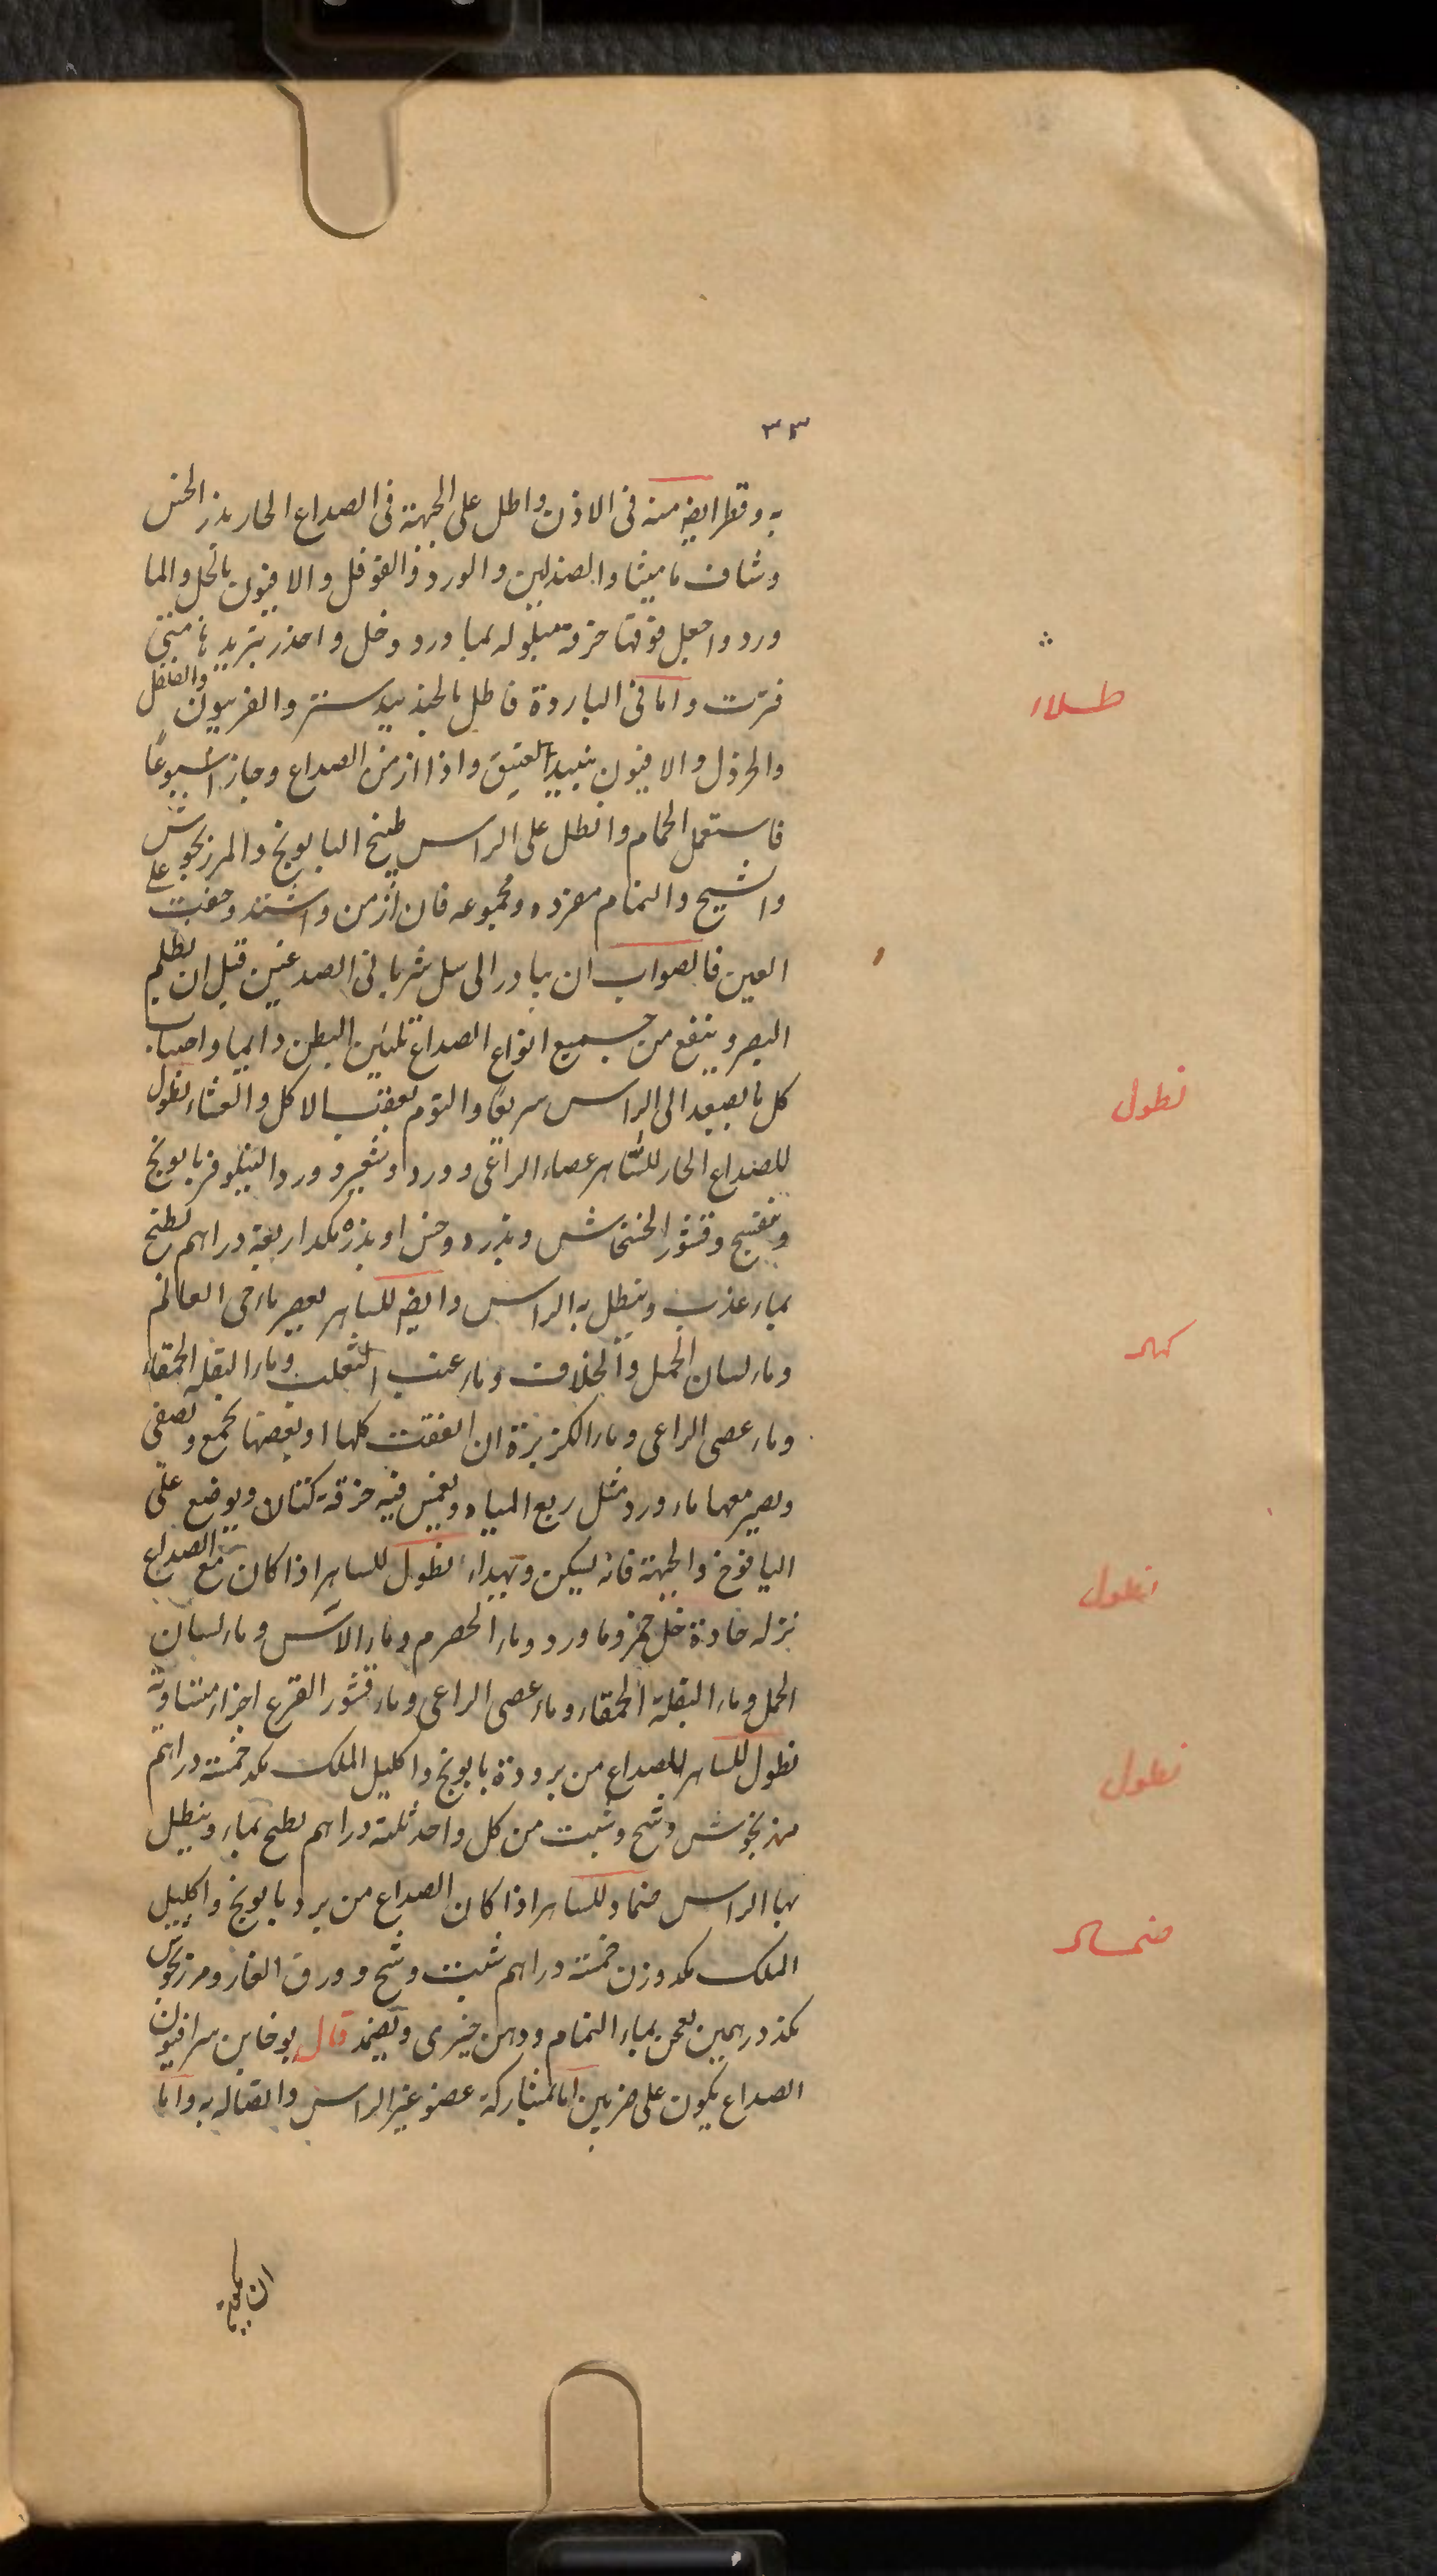 ٣٣
به وقطر ايضه منه فى الاذن واطل على الجبهة فى الصداع الحار بذر الخس
وشياف ماميثا والصندلين والورد والفوفل والافيون بالخل والما
ورد واجعل فوقها خرقة مبلوله بما ورد وخل واحذر بتريد ها متى
فترت واما فى الباردة فاطل بالجندبيدستر والفربيون والفلفل
والخردل والافيون بنبيد العتيق واذا ازمن الصداع وجاز اسبوعًا
فاستعمل الحمام وانطل على الراس طبيخ البابونج والمرزنجوش
والشيح والنمام مفرده ومجموعه فان ازمن واشتد وخفت على
العين فالصواب ان يبادر الى سل شريانى الصدغين قبل ان تظلم
البصر وينفع من جميع انواع الصداع تليين البطن دايما واجتناب
كل ما يصعد الى الراس سريعا والنوم بعقب الاكل والعشاء نطول
للصداع الحار للساهر عصاء الراعى وورد وشعير وورد النيلوفر بابونج
وبنفسج وقشور الخشخاش وبذره وخس او بذره مكد اربعة دراهم يطبخ
بماء عذب وينطل به الراس وايضه للساهر يعصر ماء حى العالم
وماء لسان الحمل والخلاف وماء عنب الثعلب وماء البقله الحمقاء
وماء عصى الراعى وماء الكزبرة ان اتفقت كلها او بعضها تجمع وتصفى
ويصير معها ماء ورد مثل ربع المياه ويغمس فيه خرقة كتان ويوضع على
اليافوخ والجبهة فانه يسكن ويهداء نطول للساهر اذا كان مع الصداع
نزله حادة خل خمر وما ورد وماء الحصرم وماء الاس وماء لسان
الحمل وماء البقلة الحمقاء وماء عصى الراعى وماء قشور القرع اجزاء متساوية
نطول للساهر للصداع من برودة بابونج واكليل الملك مكد خمسة دراهم
مرزنجوش وشيح وشبت من كل واحد ثلثة دراهم يطبخ بماء وينطل
بها الراس ضماد للساهر اذا كان الصداع من برد بابونج واكليل
الملك مكد وزن خمسة دراهم شبت وشيح وورق الغار ومرزنجوش
مكد درهمين يعجن بماء النمام ودهن خيرى ويضمد قال يوحنا بن سرافيون
الصداع يكون على ضربين اما بمشاركة عضو غير الراس واتصاله به واما
طلاء
نطول
نطول
نطول
ضماد